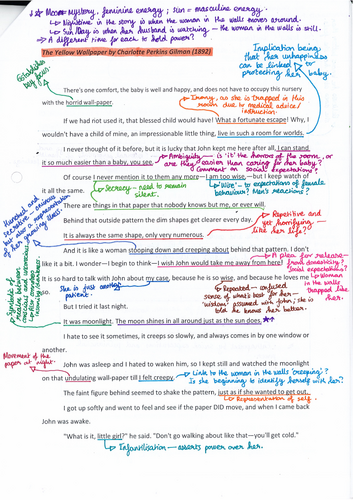 ↓☆ Moon = mystery, feminine energy; Sun = masculine energy.
↳ Nighttime in the story is when the woman in the walls moves around.
↳ Sun/Day is when her husband is watching - the woman in the walls is still.
→ A different time for each to hold power?
The Yellow Wallpaper by Charlotte Perkins Gilman (1892)
Implication being that her unhappiness can be linked to protecting her baby.
There's one comfort, the baby is well and happy, and does not have to occupy this nursery
with the horrid wall-paper.
↳ Irony, as she is trapped in this room due to medical advice/instruction.
If we had not used it, that blessed child would have! What a fortunate escape! Why, I
wouldn't have a child of mine, an impressionable little thing, live in such a room for worlds.
I never thought of it before, but it is lucky that John kept me here after all, I can stand
it so much easier than a baby, you see.
Ambiguity - is 'it' the horrors of the room, or easier than caring for her baby? Comment on social expectations?
Of course I never mention it to them any more—I am too wise,—but I keep watch of
it all the same.
Secrecy - need to remain silent.
'Wise' - to expectations of female behaviour? Men's reactions?
There are things in that paper that nobody knows but me, or ever will.
Behind that outside pattern the dim shapes get clearer every day.
It is always the same shape, only very numerous.
→ Repetitive and yet horrifying - like her life?
And it is like a woman stooping down and creeping about behind that pattern. I don't
like it a bit. I wonder—I begin to think—I wish John would take me away from here!
A plea for release - from domesticity? Social expectations? Woman in the walls trapped like her.
It is so hard to talk with John about my case, because he is so wise, and because he loves me so.
She is just another patient.
Repeated - confused sense of what's best for her - 'wisdom' assumed with John; she is told he knows better.
But I tried it last night.
It was moonlight. The moon shines in all around just as the sun does. ★↑
I hate to see it sometimes, it creeps so slowly, and always comes in by one window or
another.
Movement of the paper at night.
John was asleep and I hated to waken him, so I kept still and watched the moonlight
on that undulating wall-paper till I felt creepy.
→ Link to the woman in the walls 'creeping'? Is she beginning to identify herself with her?
The faint figure behind seemed to shake the pattern, just as if she wanted to get out.
↳ Representation of self.
I got up softly and went to feel and see if the paper DID move, and when I came back
John was awake.
"What is it, little girl?" he said. "Don't go walking about like that—you'll get cold."
↳ Infantilisation - asserts power over her.